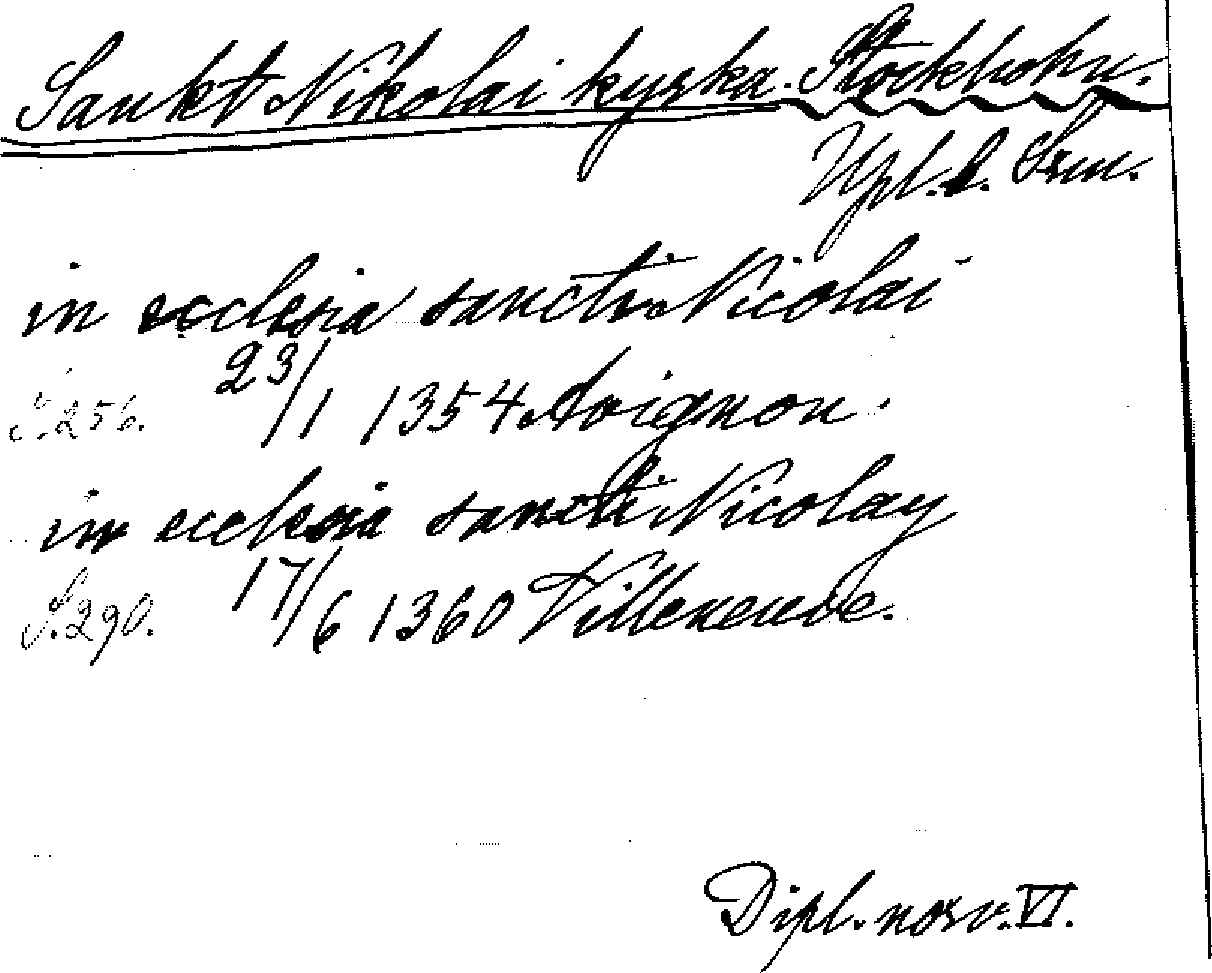 Sankt Nikolai kyrka. Stockholm.
Upl. o. Srm.
in ecclesia sancti Nicolai
S. 256. 23/1 1354 Avignon.
in ecclesia sancti Nicolay
S. 290. 17/6 1360 Villeneuve.
Dipl. norv. VI.